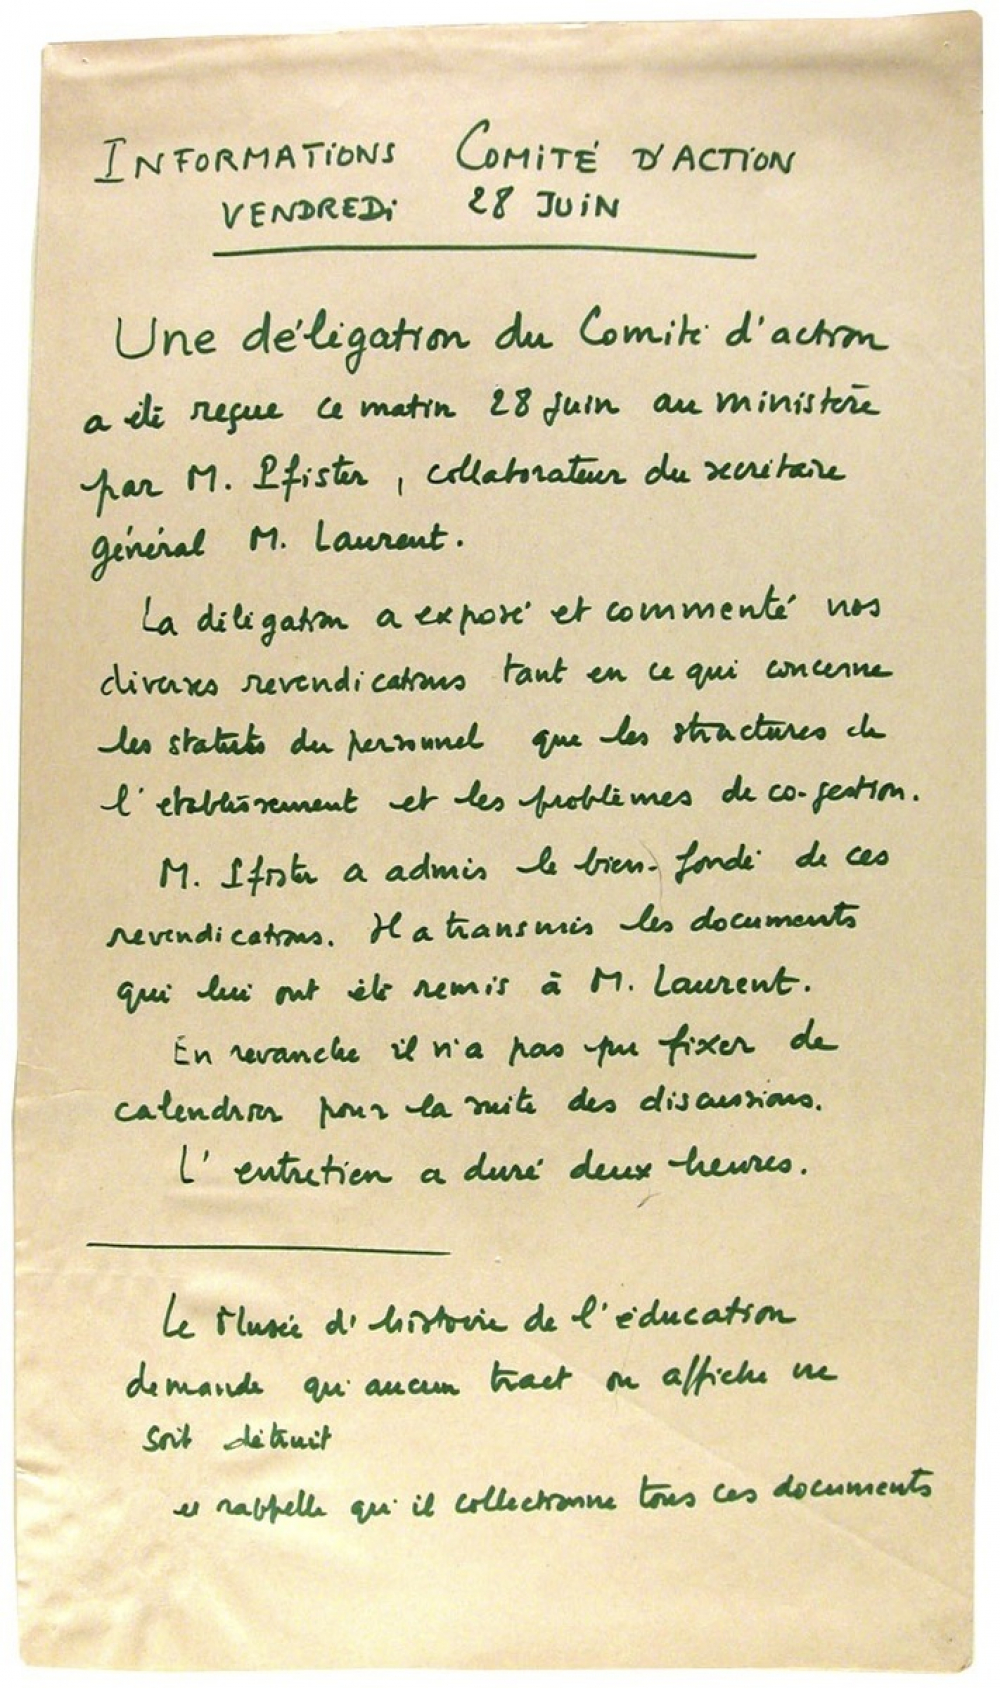 INFORMATIONS COMITÉ D'ACTION
VENDREDI 28 JUIN
Une délégation du Comité d'action
a été reçue ce matin 28 juin au ministère
par M. Pfister, collaborateur du secrétaire
général M. Laurent.
La délégation a exposé et commenté nos
diverses revendications tant en ce qui concerne
les statuts du personnel que les structures de
l'établissement et les problèmes de co-gestion.
M. Pfister a admis le bien-fondé de ces
revendications. Il a transmis les documents
qui lui ont été remis à M. Laurent.
En revanche il n'a pas pu fixer de
calendrier pour la suite des discussions.
L'entretien a duré deux heures.
Le Musée d'histoire de l'éducation
demande qu'aucun tract ou affiche ne
soit détruit
et rappelle qu'il collectionne tous ces documents